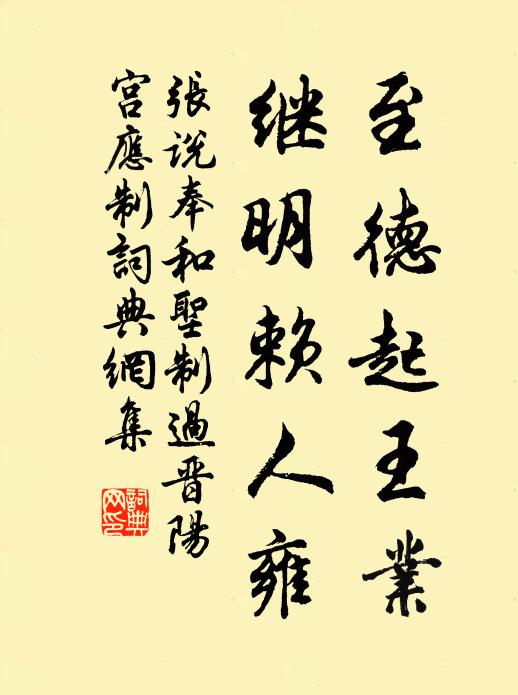 至德起王業
继明賴人雍
張说奉和聖制過晋陽
宫應制詞典網集
詞典网印